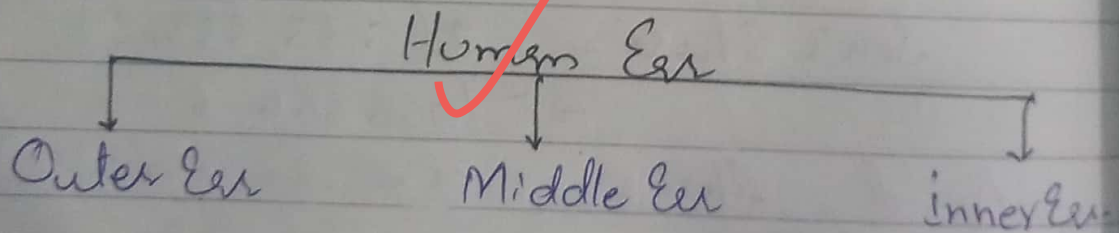 Human Ear
Outer Ear Middle Ear inner Ear